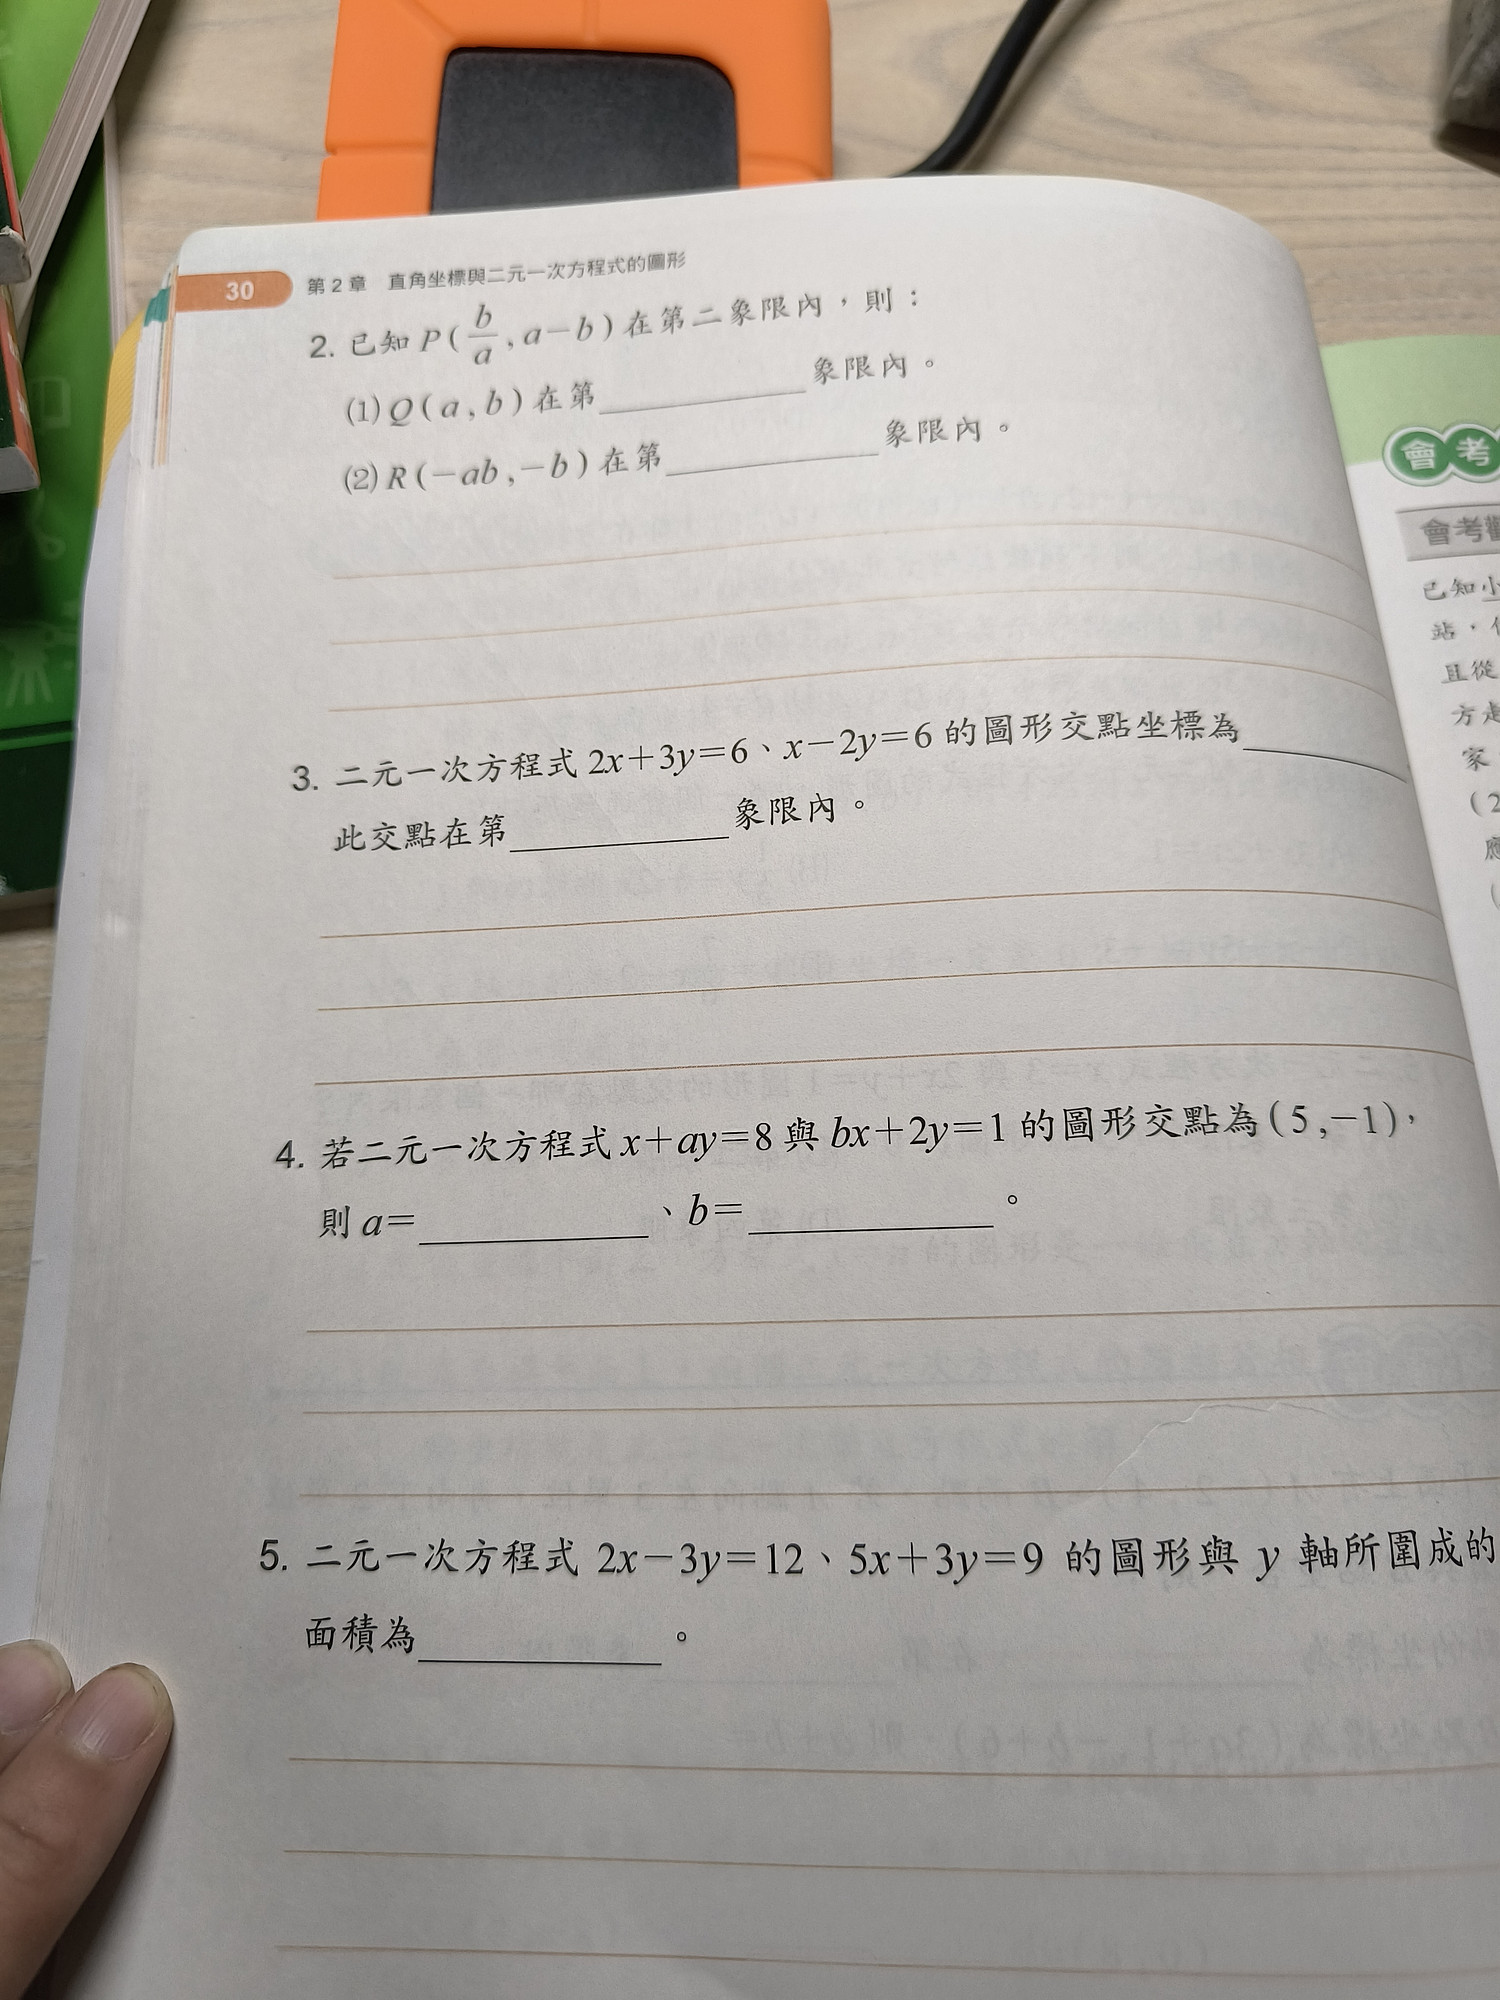 30 第2章 直角坐標與二元一次方程式的圖形
2. 已知 P(b/a , a−b) 在第二象限內，則：
(1) Q(a , b) 在第＿＿＿＿象限內。
(2) R(−ab , −b) 在第＿＿＿＿象限內。
3. 二元一次方程式 2x+3y=6、x−2y=6 的圖形交點坐標為＿＿＿＿
此交點在第＿＿＿＿象限內。
4. 若二元一次方程式 x+ay=8 與 bx+2y=1 的圖形交點為 (5 ,−1)，
則 a=＿＿＿＿、b=＿＿＿＿。
5. 二元一次方程式 2x−3y=12、5x+3y=9 的圖形與 y 軸所圍成的
面積為＿＿＿＿。
會考
會考觀
已知小
站，
且從
方走
家
(2
應